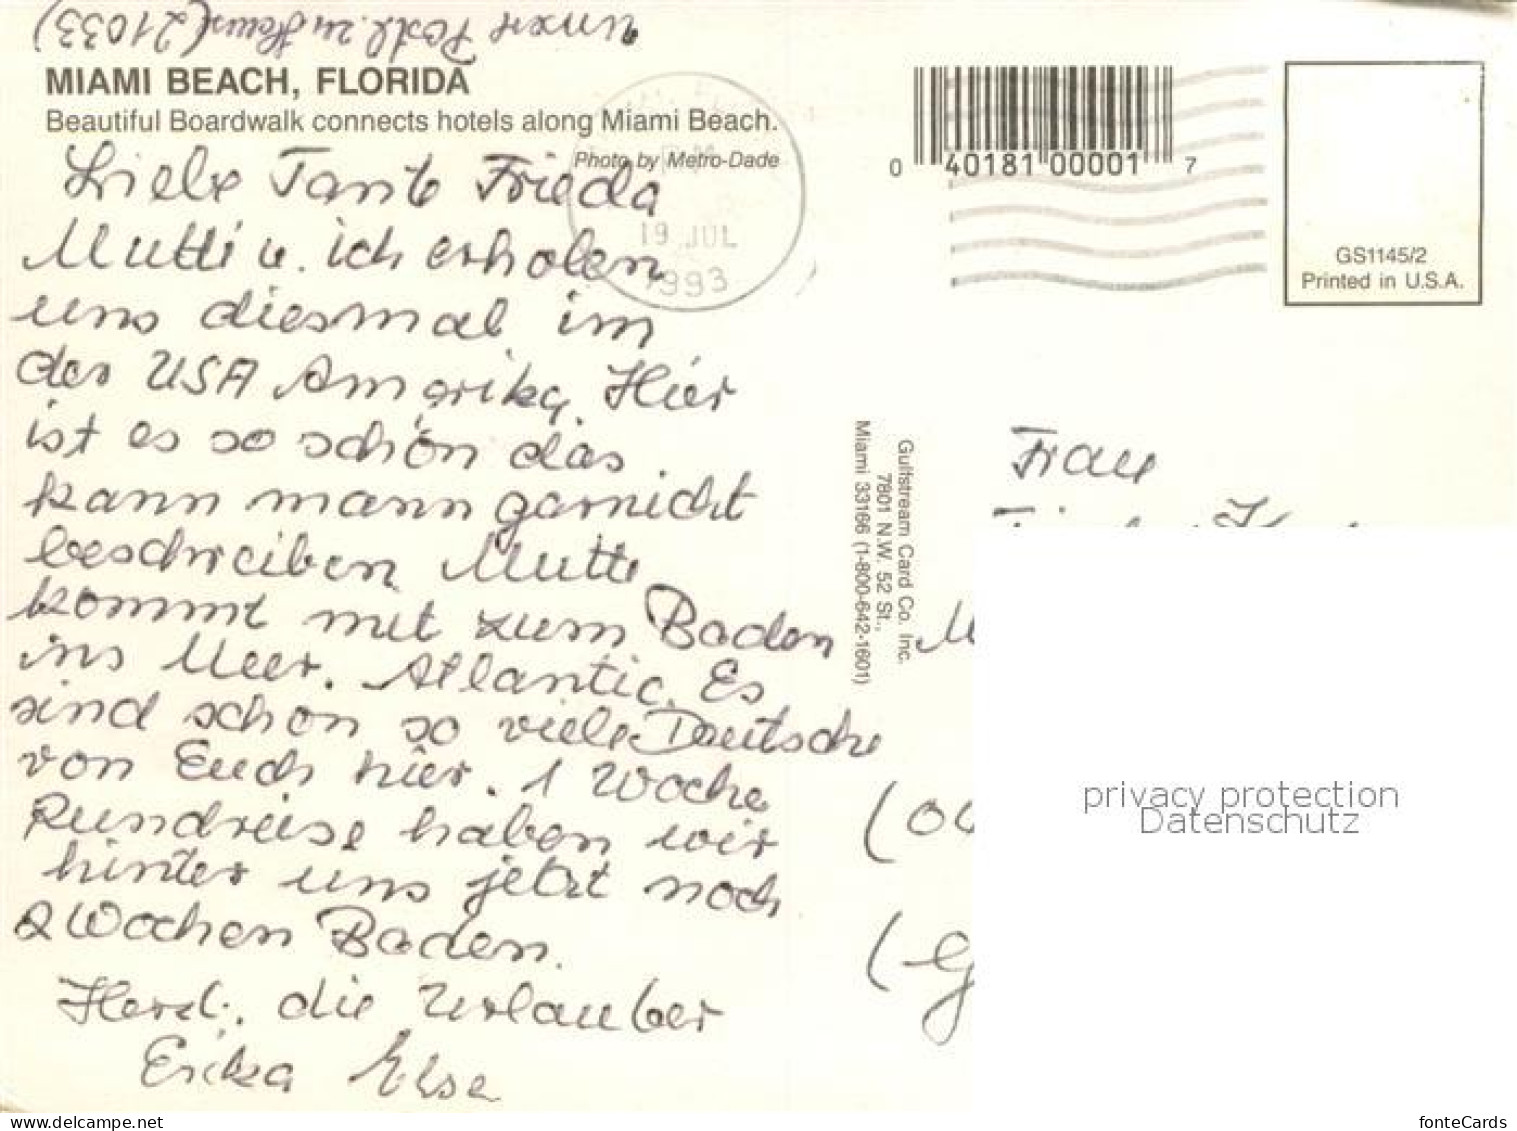 unsere Postl. zu Hause (21033)
MIAMI BEACH, FLORIDA
Beautiful Boardwalk connects hotels along Miami Beach.
Photo by Metro-Dade
Liebe Tante Frieda
Mutti u. ich erholen
uns diesmal im
der USA Amerika. Hier
ist es so schön das
kann mann garnicht
beschreiben Mutti
kommt mit zum Baden
ins Meer. Atlantic. Es
sind schon so viele Deutsche
von Euch hier. 1 Woche
Rundreise haben wir
hinter uns jetzt noch
2 Wochen Baden.
Herzl. die Urlauber
Erika Else
19 JUL
1993
0 40181 00001 7
GS1145/2
Printed in U.S.A.
Gulfstream Card Co. Inc.
7801 N.W. 52 St.,
Miami 33166 (1-800-642-1601)
Frau
privacy protection
Datenschutz
fonteCards